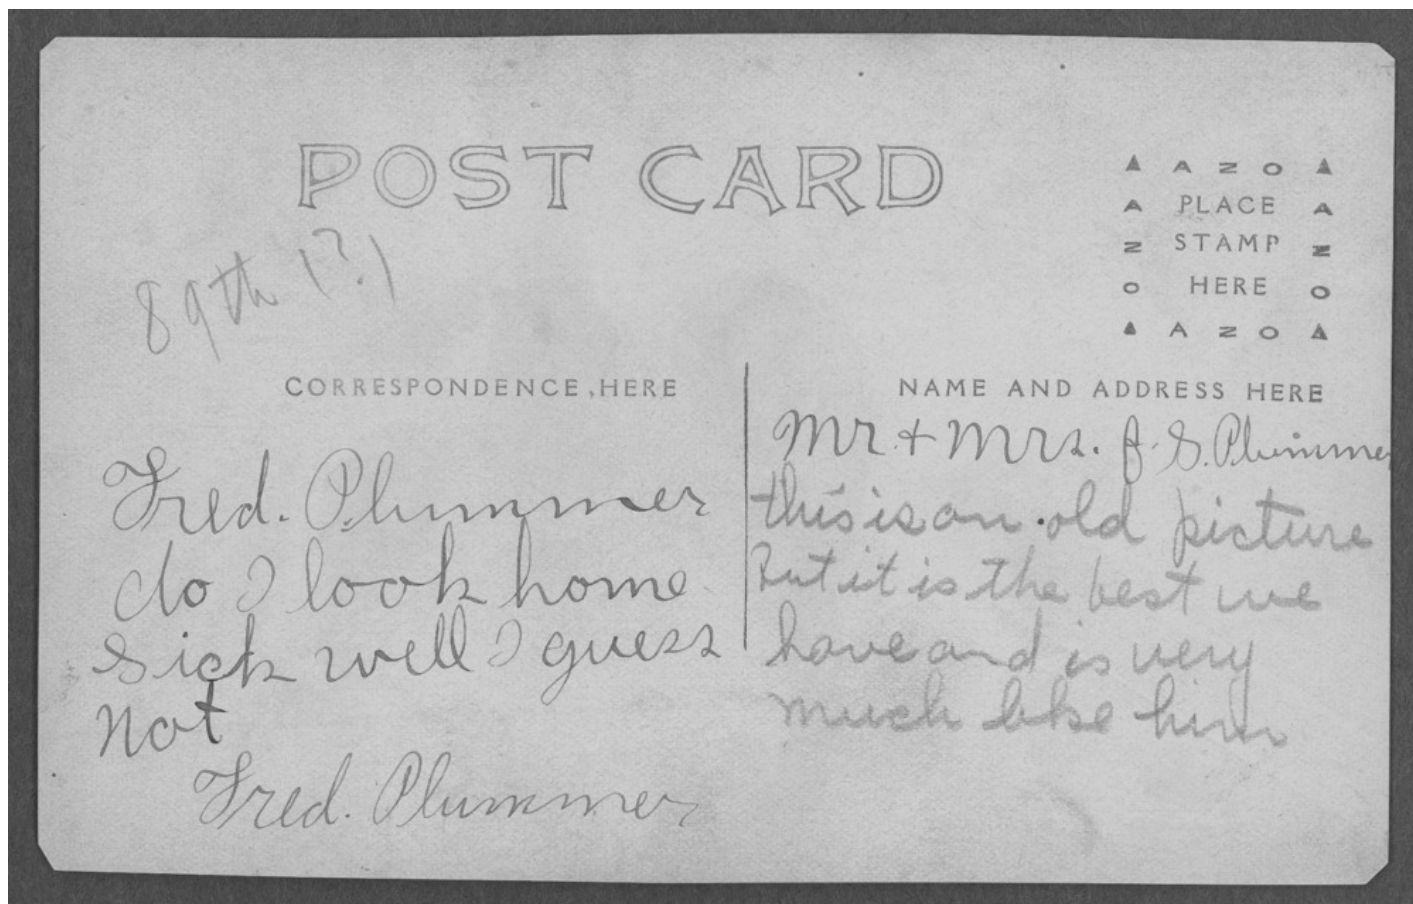 POST CARD
▲ A Z O ▲
A PLACE A
Z STAMP Z
O HERE O
▲ A Z O ▲
89th (?)
CORRESPONDENCE HERE
Fred. Plummer
do I look home
sick well I guess
not
Fred. Plummer
NAME AND ADDRESS HERE
Mr + Mrs. J. S. Plummer
this is an old picture
but it is the best we
have and is very
much like him